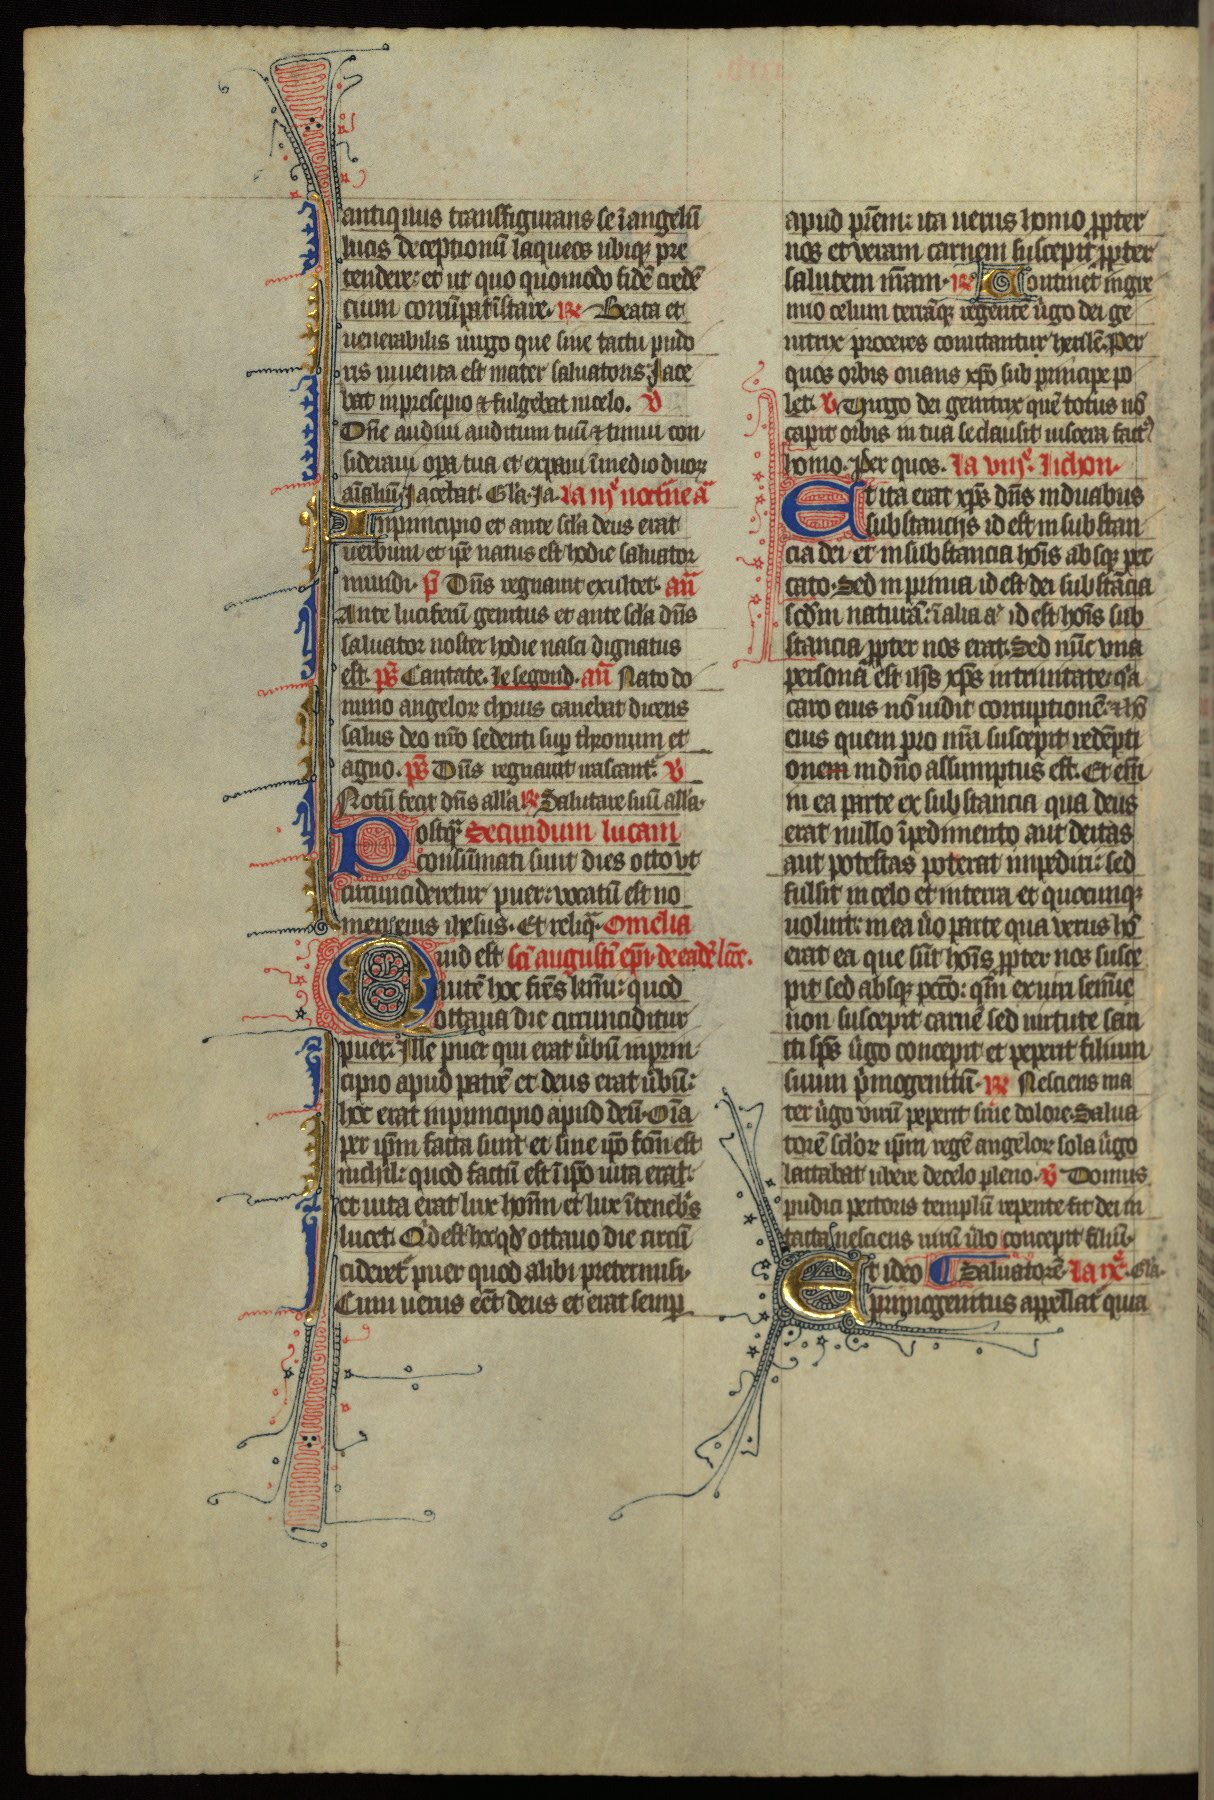 antiquus transfigurans se ī angelū
lucis deceptionū laqueos ubiq; pre
tendere: et ut quo quomodo fidē credē
cium corrūpat īstare. R̃ Beata et
venerabilis uirgo que sine tactu pudo
ris inuenta est mater saluatoris. Iace
bat in presepio & fulgebat in celo. V̄
Dn̄e audiui auditum tuū & timui con
sideraui opa tua et expaui ī medio duoꝝ
aīaliū. Jacebat. Gl'a. Ja.
In principio et ante scl'a deus erat
uerbum et ip̄e natus est hodie saluator
mundi. p̄ Dn̄s regnauit exultet. an̄
Ante luciferū genitus et ante scl'a dn̄s
saluator noster hodie nasci dignatus
est. ps̄ Cantate. le segond. an̄ Nato do
mino angeloꝝ chorus canebat dicens
salus deo nr̄o sedenti sup thronum et
agno. ps̄ Dn̄s regnauit irascant̄. V̄
Notū fecit dn̄s all'a R̃ Salutare suū all'a.
Postq̄ Secundum lucam
consūmati sunt dies octo vt
circūcideretur puer: vocatū est no
men eius ihesus. Et reliq̄. Omelia
Quid est sc̄i augusti ep̄i. de eadē lcc̄e.
autē hoc fr̄es kr̄mi: quod
octaua die circunciditur
puer. Ille puer qui erat ūbū in prin
cipio apud patrē et deus erat ūbū:
hoc erat in principio apud deū. Oīa
per ip̄m facta sunt et sine ip̄o fc̄m est
nichil: quod factū est ī ip̄o uita erat:
et uita erat lux hoīm et lux ī tenebˢs
lucet. Qd est hoc qd' octauo die circū
cideret̄ puer quod alibi pretermisi.
Cum uerus eēt deus et erat semp
apud pr̄em: ita uerus homo ppter
nos et veram carnem suscepit ppter
salutem nr̄am. R̃ Continet̄ in gre
mio celum terrāq; regentē ūgo dei ge
nitrix proceres comitantur herilē. Per
quos orbis ouans xp̄o sub principe po
let. V̄ Virgo dei genitrix quē totus nō
capit orbis in tua se clausit uiscera fact'
homo. Per quos. La viijᵉ. lichon.
Et ita erat xp̄s dn̄s in duabus
substancijs id est in substan
cia dei et in substancia hoīs absq; pec
cato. Sed in prima id est dei substācia
scd̄m naturā: ī alia aᵗ id est hoīs sub
stancia ppter nos erat. Sed nūc vna
persona est ihs̄ xp̄s in trinitate: qˢa
caro eius nō uidit corruptionē. & hō
eius quem pro nr̄a suscepit redēpti
onem in dn̄o assumptus est. Et em̄
in ea parte ex substancia qua deus
erat nullo īpedimento aut deitas
aut potestas poterat impediri: sed
fulsit in celo et in terra et quocunq;
uoluit: in ea ūo parte qua verus hō
erat ea que sūt hoīs ppter nos susce
pit sed absq; pcc̄o: qm̄ ex uiri semīe
non suscepit carnē sed uirtute san
cti sp̄s ūgo concepit et peperit filium
suum pˢmogenitū. R̃ Nesciens ma
ter ūgo virū peperit sine dolore. Salua
torē scl'oꝝ ip̄m regē angeloꝝ sola ūgo
lactabat ubere de celo pleno. V̄ Domus
pudici pectoris templū repente fit dei in
tacta nesciens uirū ūbo concepit filiū.
Et ideo ¶ Saluatorē. La ixᵉ. Gl'a.
primogenitus appellat̄ quia